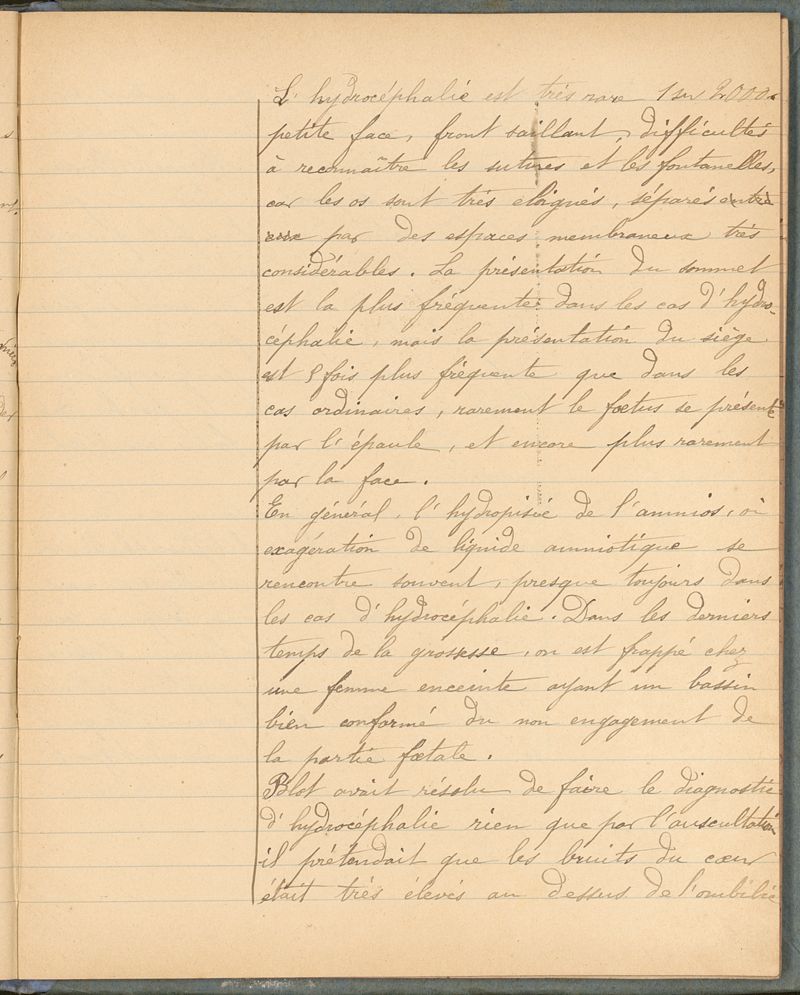 L'hydrocéphalie est très rare 1 sur 2.000.
petite face, front saillant, difficultés
à reconnaître les sutures et les fontanelles,
car les os sont très éloignés, séparés entre
eux par des espaces membraneux très
considérables. La présentation du sommet
est la plus fréquente dans les cas d'hydro-
céphalie, mais la présentation du siège
est 5 fois plus fréquente que dans les
cas ordinaires, rarement le fœtus se présente
par l'épaule, et encore plus rarement
par la face.
En général, l'hydropisie de l'amnios, ou
exagération de liquide amniotique se
rencontre souvent, presque toujours dans
les cas d'hydrocéphalie. Dans les derniers
temps de la grossesse, on est frappé chez
une femme enceinte ayant un bassin
bien conformé du non engagement de
la partie fœtale.
Blot avait résolu de faire le diagnostic
d'hydrocéphalie rien que par l'auscultation
il prétendait que les bruits du cœur
était très élevés au dessus de l'ombilic